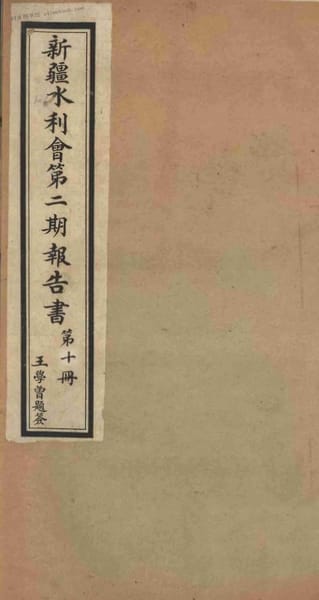 新疆水利會第二期報告書
第十冊
王學曾題簽